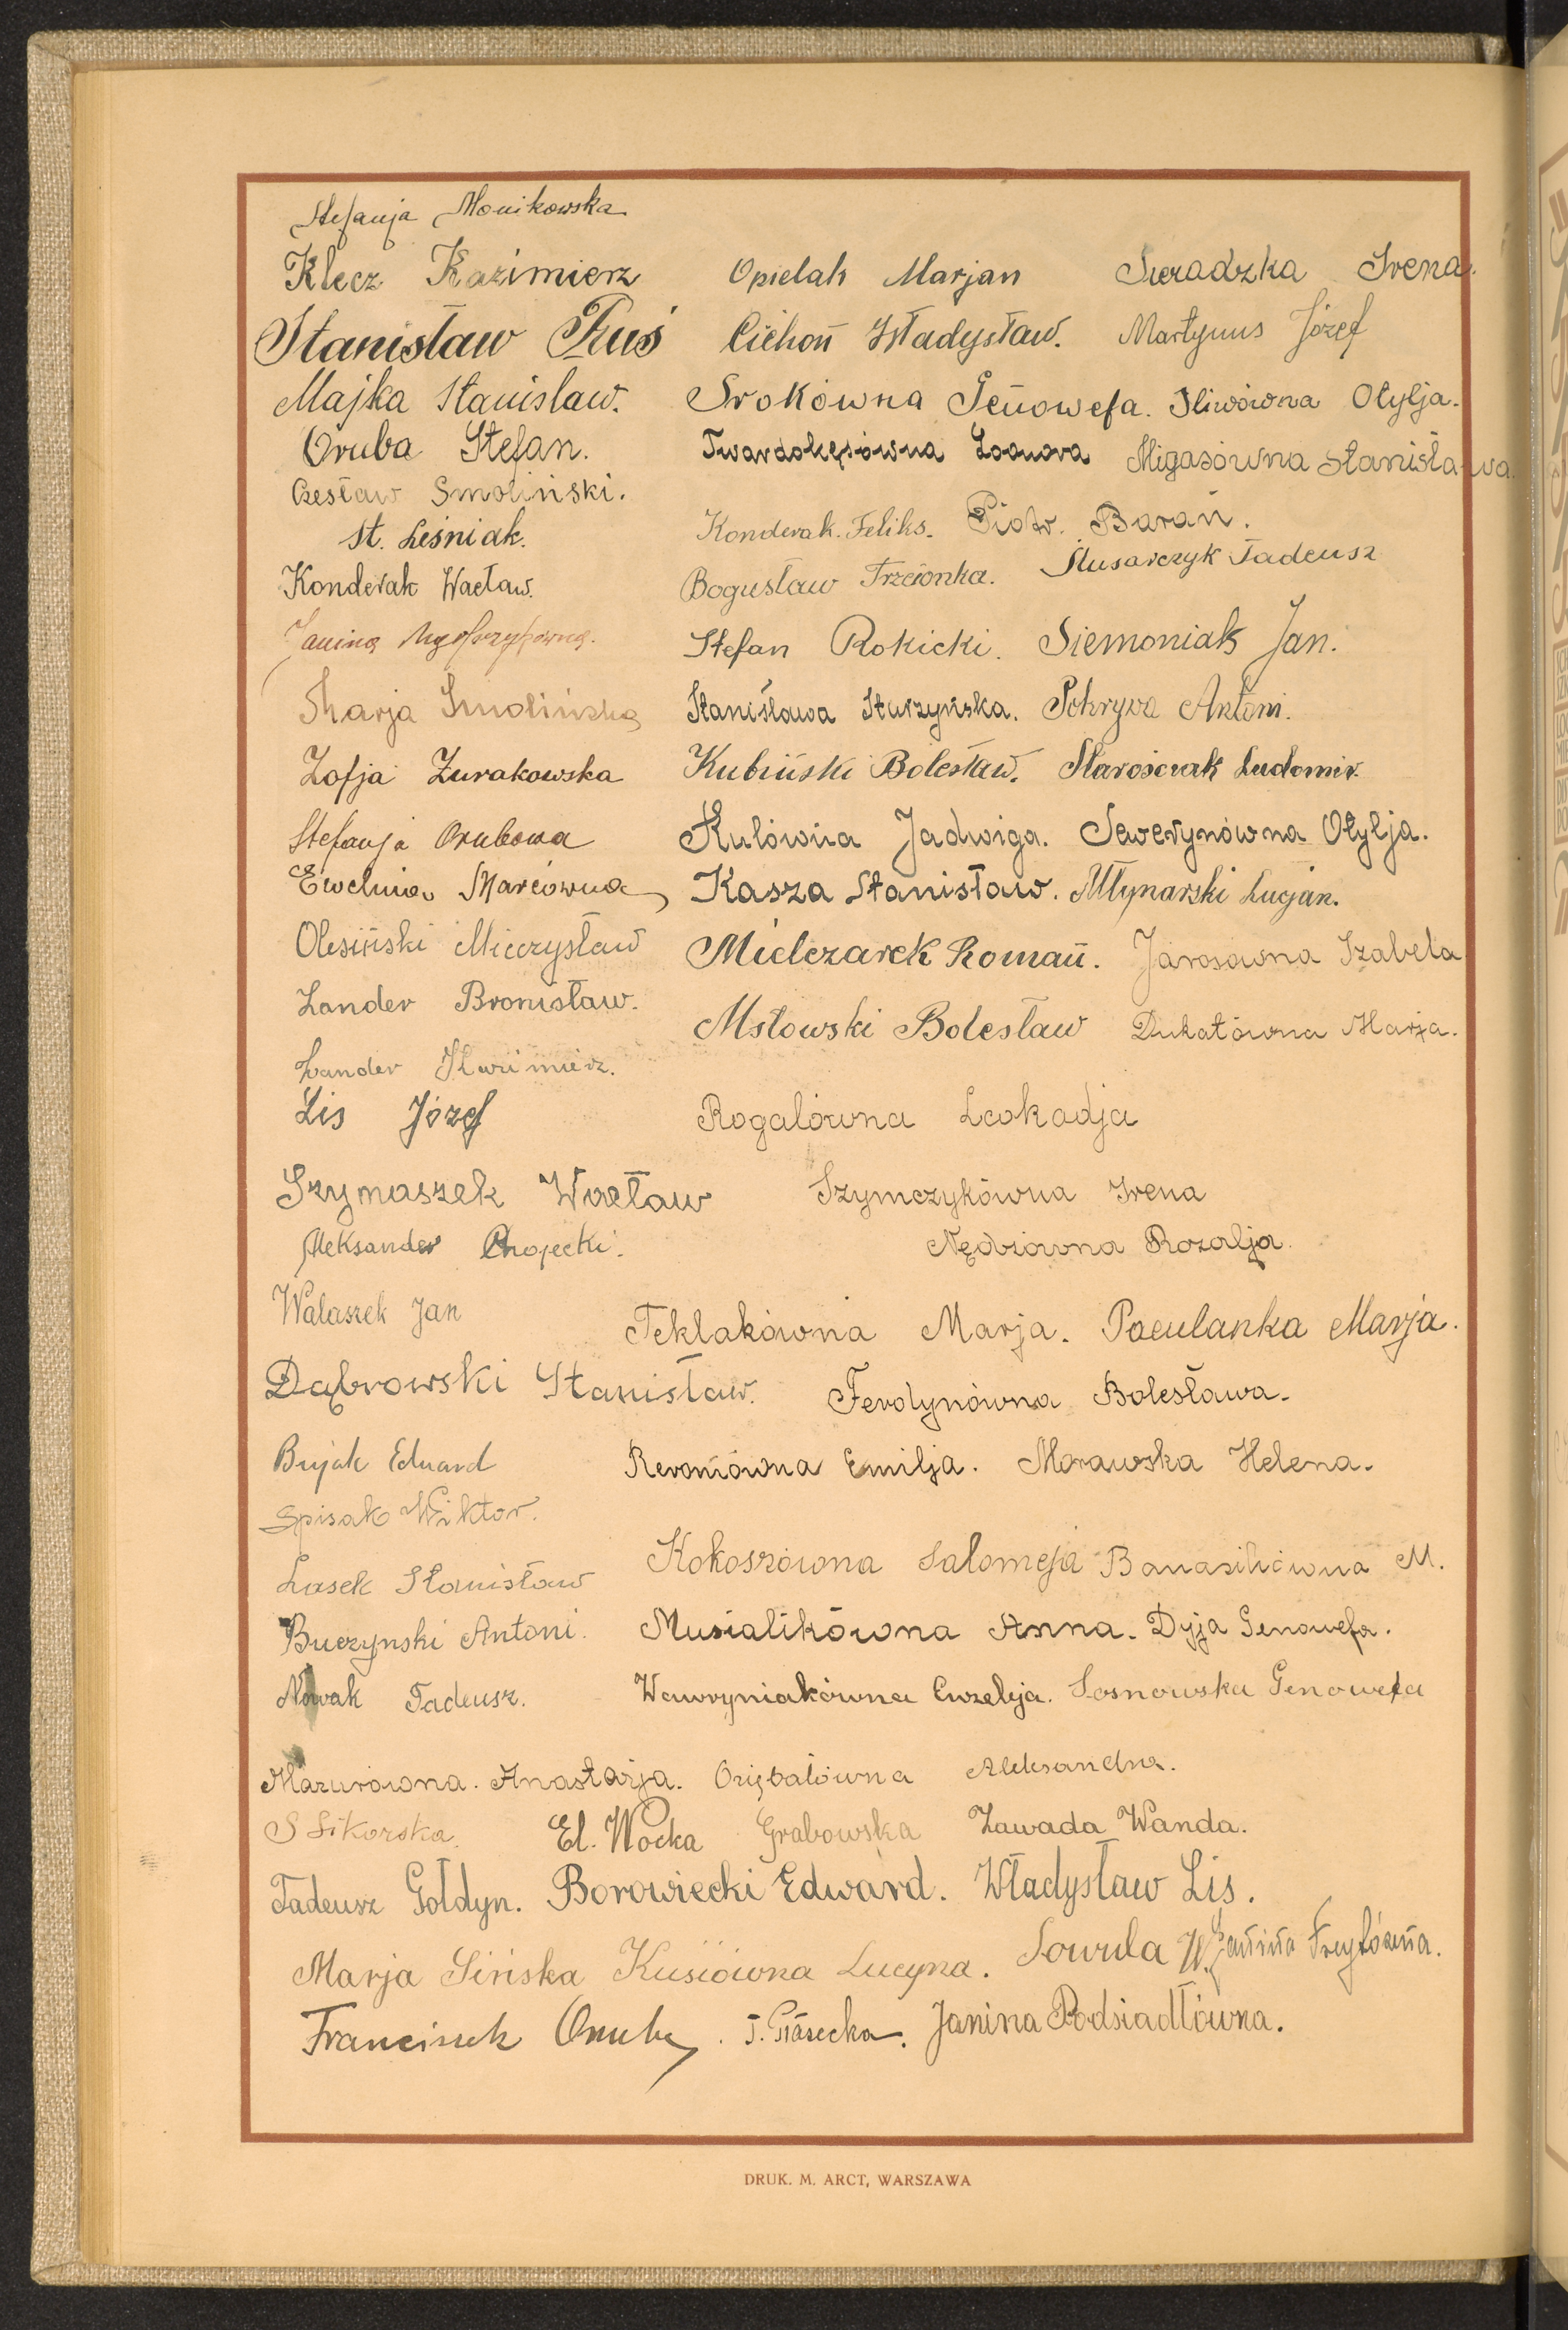 Stefanja Monikowska
Klecz Kazimierz Opielak Marjan Sieradzka Irena.
Stanisław Kuś Cichoń Władysław. Martynus Józef
Majka Stanisław. Srokówna Genowefa. Śliwówna Otylja.
Oruba Stefan. Twardokęsówna Leonora Migasówna Stanisława.
Czesław Smoliński.
St. Leśniak. Konderak Feliks. Piotr. Barań.
Konderak Wacław. Bogusław Trzcionka. Ślusarczyk Tadeusz
Janina Stefan Rokicki. Siemoniak Jan.
Marja Smolińska Stanisława Sturzyńska. Pokrywa Antoni.
Zofja Żurakowska Kubiński Bolesław. Starościak Ludomir.
Stefanja Orubowa Kulówna Jadwiga. Sewerynówna Otylja.
Ewelina Marcówna Kasza Stanisław. Młynarski Lucjan.
Olesiński Mieczysław Mielczarek Roman. Jarosówna Izabela
Lander Bronisław. Msłowski Bolesław Dukatówna Marja.
Lander
Lis Józef Rogalówna Leokadja
Szymaszek Wacław Szymczykówna Irena
Aleksander Chojecki. Nędziówna Rozalja.
Walaszek Jan Teklakówna Marja. Paculanka Marja.
Dąbrowski Stanisław. Ferdynówna Bolesława.
Bujak Eduard Reroniówna Emilja. Morawska Helena.
Spisak Wiktor.
Lasek Stanisław Kokoszówna Salomeja Banasikówna M.
Buczynski Antoni. Musialikówna Anna. Dyja Genowefa.
Nowak Tadeusz. Wawryniakówna Euzebja. Sosnowska Genowefa
Mazurówna. Anastazja. Orębalówna Aleksandra.
S Sikorska. El. Wocka Grabowska Zawada Wanda.
Tadeusz Gołdyn. Borowiecki Edward. Władysław Lis.
Marja Sińska Kusiówna Lucyna. Sowula W. Janina
Franciszek Oruba. T. Piasecka. Janina Podsiadłówna.
DRUK. M. ARCT, WARSZAWA